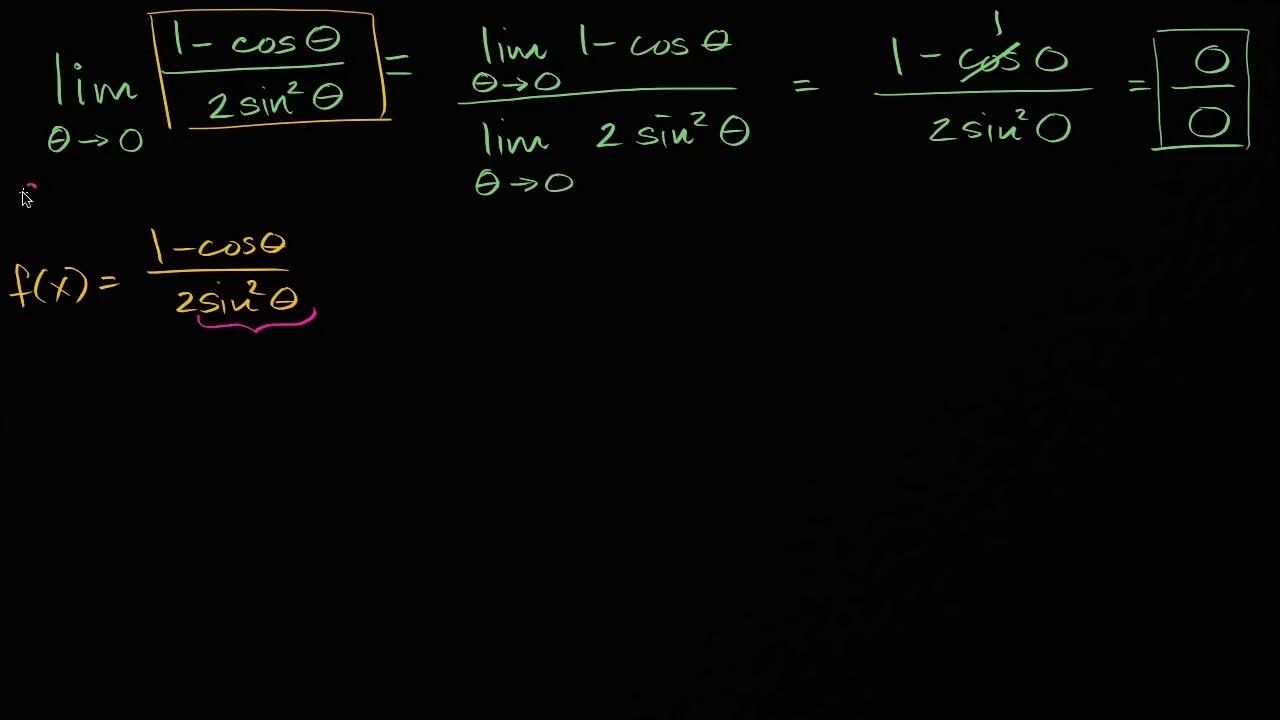 lim θ→0 (1 - cosθ)/(2sin²θ) = (lim θ→0 1 - cosθ)/(lim θ→0 2 sin²θ) = (1 - cos 0)/(2sin²0) = 0/0
1
f(x) = (1 - cosθ)/(2sin²θ)